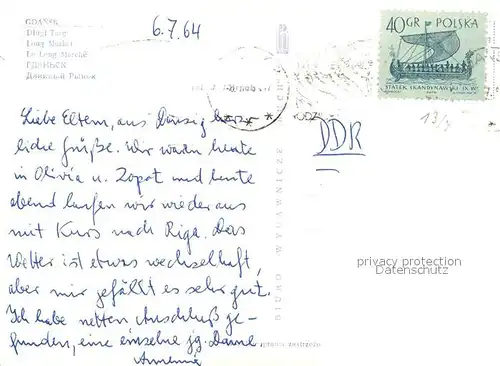 GDAŃSK
Długi Targ
Long Market
Le Long Marché
ГДАНЬСК
Длинный Рынок
6.7.64
40 GR POLSKA
STATEK SKANDYNAWSKI IX W.
DDR
Liebe Eltern, aus Danzig herz-
liche Grüße. Wir waren heute
in Olivia u. Zopot und heute
abend laufen wir wieder aus
mit Kurs nach Riga. Das
Wetter ist etwas wechselhaft,
aber mir gefällt es sehr gut.
Ich habe netten Anschluß ge-
funden, eine einzelne jg. Dame
BIURO WYDAWNICZE
privacy protection
Datenschutz